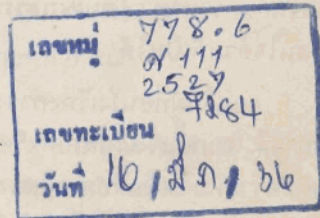 เลขหมู่ 778.6
ศ 111
2527
เลขทะเบียน 284
วันที่ 16 / มี.ค / 36